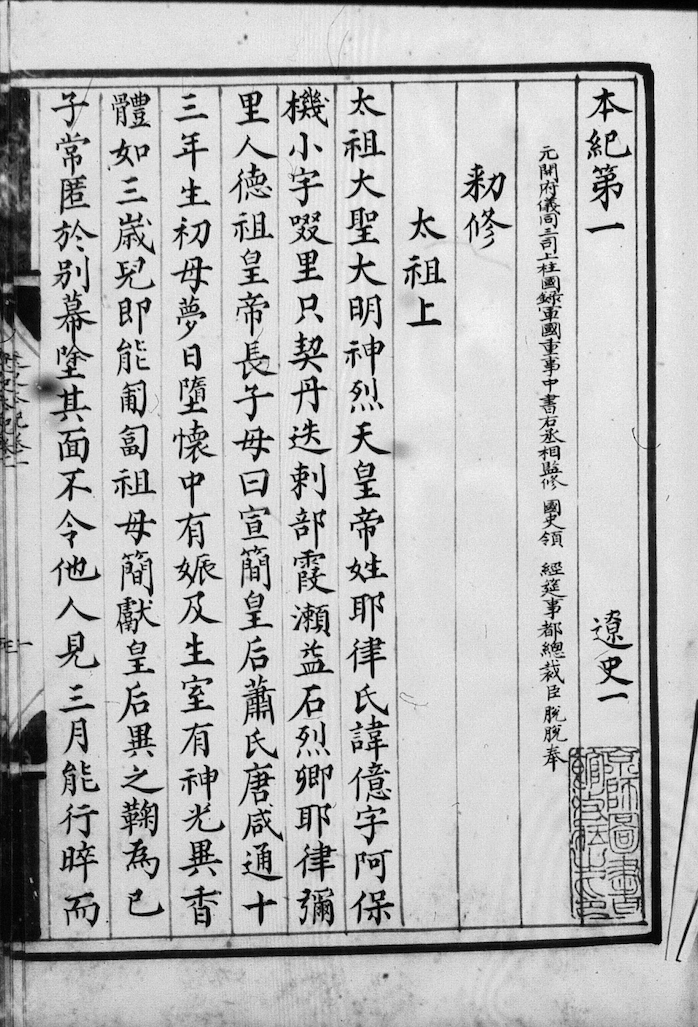 本紀第一 遼史一
元開府儀同三司上柱國錄軍國重事中書右丞相監修 國史領 經筵事都總裁臣脫脫奉
勑修
太祖上
太祖大聖大明神烈天皇帝姓耶律氏諱億字阿保
機小字啜里只契丹迭剌部霞瀨益石烈鄉耶律彌
里人德祖皇帝長子母曰宣簡皇后蕭氏唐咸通十
三年生初母夢日墮懷中有娠及生室有神光異香
體如三歲兒即能匍匐祖母簡獻皇后異之鞠為已
子常匿於別幕塗其面不令他人見三月能行晬而
京師圖書館